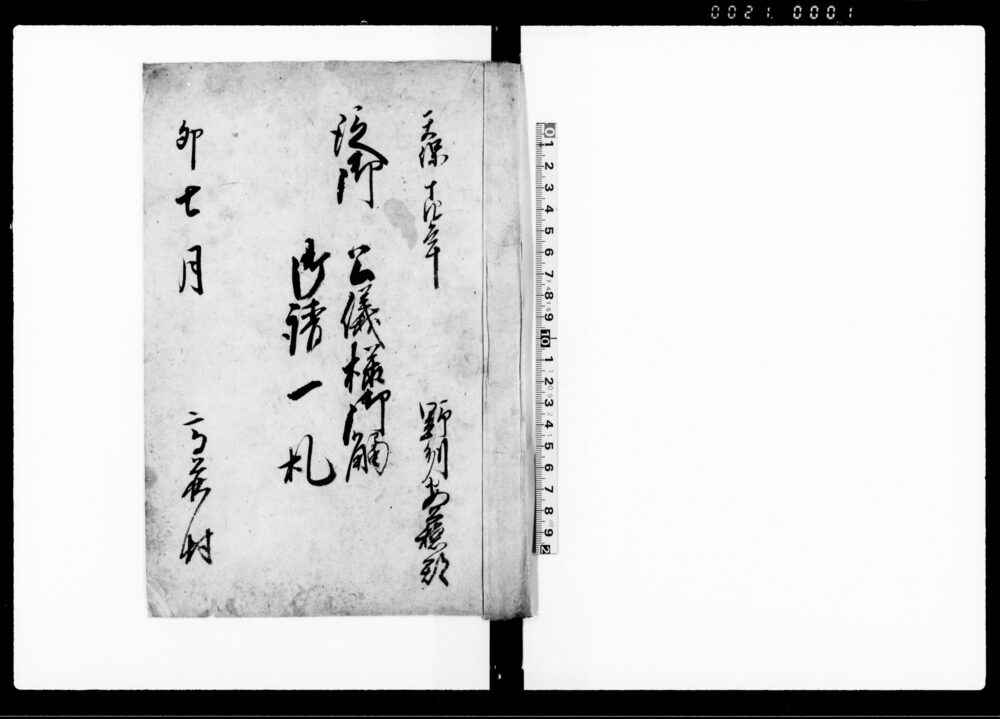 0021. 0001
天保十四年
野州安蘇郡
従御 公儀様御触
御請一札
卯七月
高萩村
0 1 2 3 4 5 6 7 8 9 10 1 2 3 4 5 6 7 8 9 2